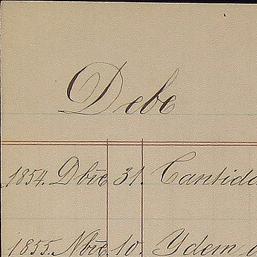 Debe
1854. Dbre 31. Cantida
1855. Nbre 10. Ydem